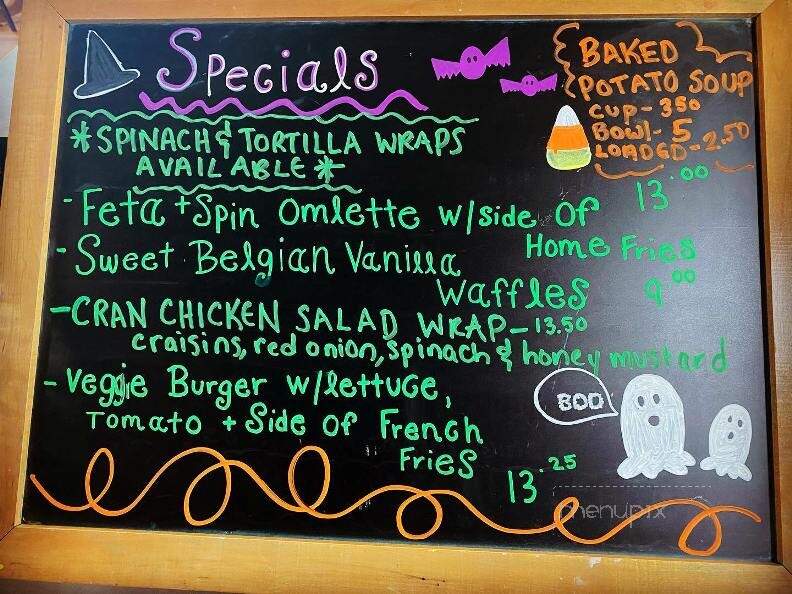 Specials
BAKED
POTATO SOUP
CUP - 350
BOWL - 5
LOADED - 2.50
*SPINACH & TORTILLA WRAPS
AVAILABLE*
- Feta + Spin Omlette w/side of 13.00
Home Fries
- Sweet Belgian Vanilla
Waffles 9 00
- CRAN CHICKEN SALAD WRAP - 13.50
craisins, red onion, spinach & honey mustard
- Veggie Burger w/lettuce,
Tomato + Side of French
Fries 13.25
BOO
menupix